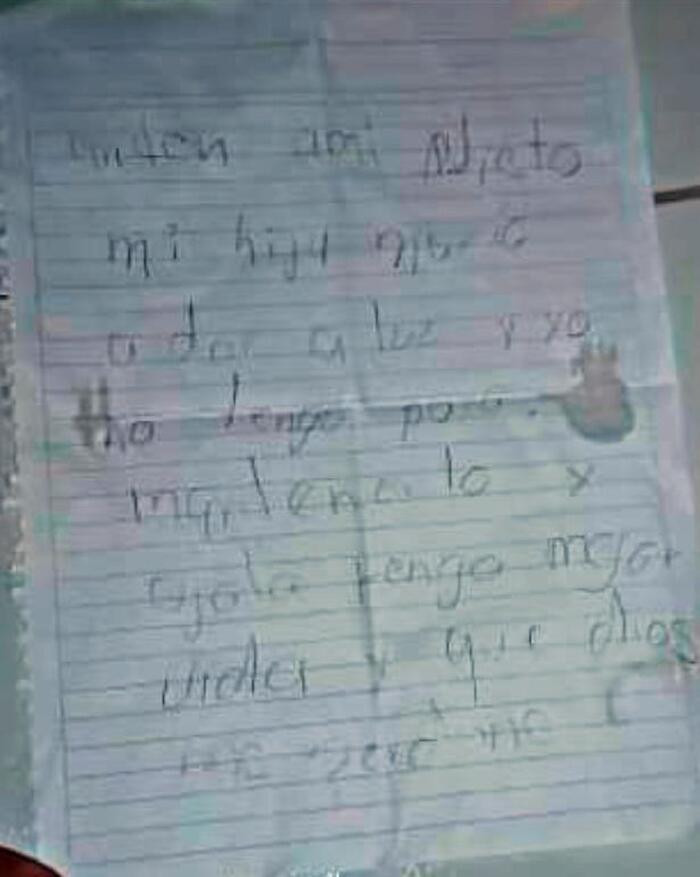 ami Nieto
mi hija
a dar a luz y yo
no tengo para
mantenerlo y
ojala tenga mejor
vida y que dios
me